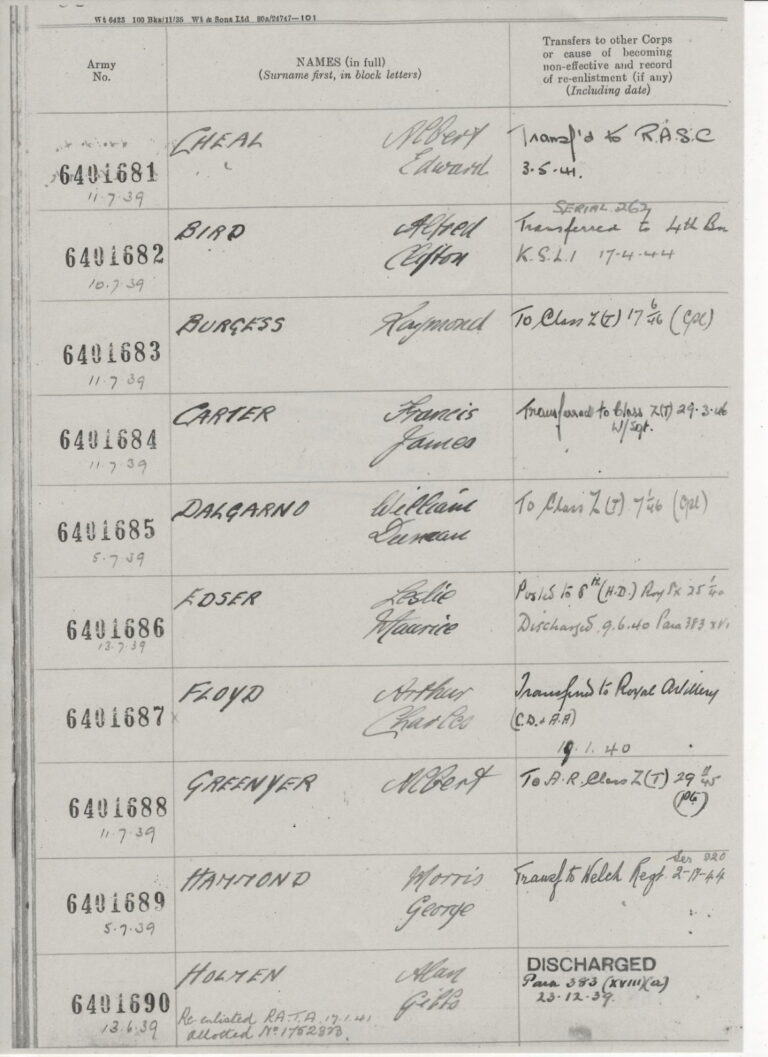 Wt 6425 100 Bks/11/35 Wt & Sons Ltd 80a/24747—101
Army
No.
NAMES (in full)
(Surname first, in block letters)
Transfers to other Corps
or cause of becoming
non-effective and record
of re-enlistment (if any)
(Including date)
6401681
11.7.39
CHEAL
Albert
Edward
Transf'd to R.A.S.C
3.5.41.
6401682
10.7.39
BIRD
Alfred
Clifton
SERIAL 262
Transferred to 4th Bn
K.S.L.I 17-4-44
6401683
11.7.39
BURGESS
Raymond
To Class Z(T) 17 6/46 (Cpl)
6401684
11.7.39
CARTER
Francis
James
Transferred to Class Z(T) 29.3.46
W/Sgt.
6401685
5.7.39
DALGARNO
William
Duncan
To Class Z(T) 7 1/46 (Cpl)
6401686
13.7.39
EDSER
Leslie
Maurice
Posted to 8th (H.D.) Roy Sx 25 1/40
Discharged 9.6.40 Para 383 xvi
6401687
FLOYD
Arthur
Charles
Transferred to Royal Artillery
(C.D. & A.A)
19.1.40
6401688
11.7.39
GREENYER
Albert
To A.R. Class Z(T) 29 11/45
(Pte)
6401689
5.7.39
HAMMOND
Morris
George
Ser 220
Transf to Welch Regt 2-11-44
6401690
13.6.39
HOLMEN
Alan
Gibbs
Re enlisted R.A.T.A. 17.1.41
allotted No
DISCHARGED
Para 383 (XVIII)(a)
23.12.39.